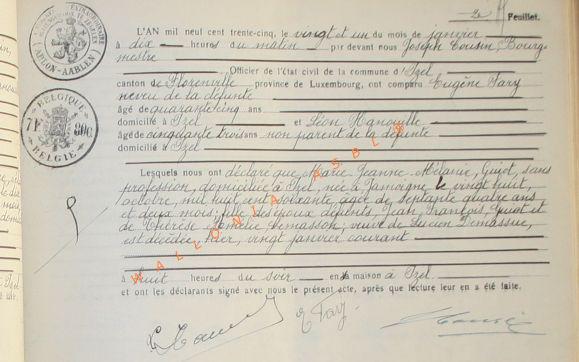 2e Feuillet.
L'AN mil neuf cent trente-cinq, le vingt et un du mois de janvier
à dix heures du matin par devant nous Joseph Cousin Bourg-
mestre
Officier de l'État civil de la commune d'Izel
canton de Florenville province de Luxembourg, ont comparu Eugène Tary
neveu de la défunte
âgé de quarante cinq ans
domicilié à Izel et Léon Hanouille
âgé de cinquante trois ans non parent de la défunte
domicilié à Izel
Lesquels nous ont déclaré que Marie Jeanne Mélanie Guiot, sans
profession, domiciliée à Izel, née à Jamoigne le vingt huit
octobre, mil huit cent soixante, âgée de septante quatre ans
et deux mois, fille des époux défunts, Jean François, Guiot et
de Thérèse Amélie Lemasson, veuve de Lucien Demassue,
est décédée hier, vingt janvier courant
à huit heures du soir en sa maison à Izel
et ont les déclarants signé avec nous le présent acte, après que lecture leur en a été faite.
E Tary
ARLON-AARLEN
BELGIQUE
7F 80c
BELGIE
WALLONIA ASBL